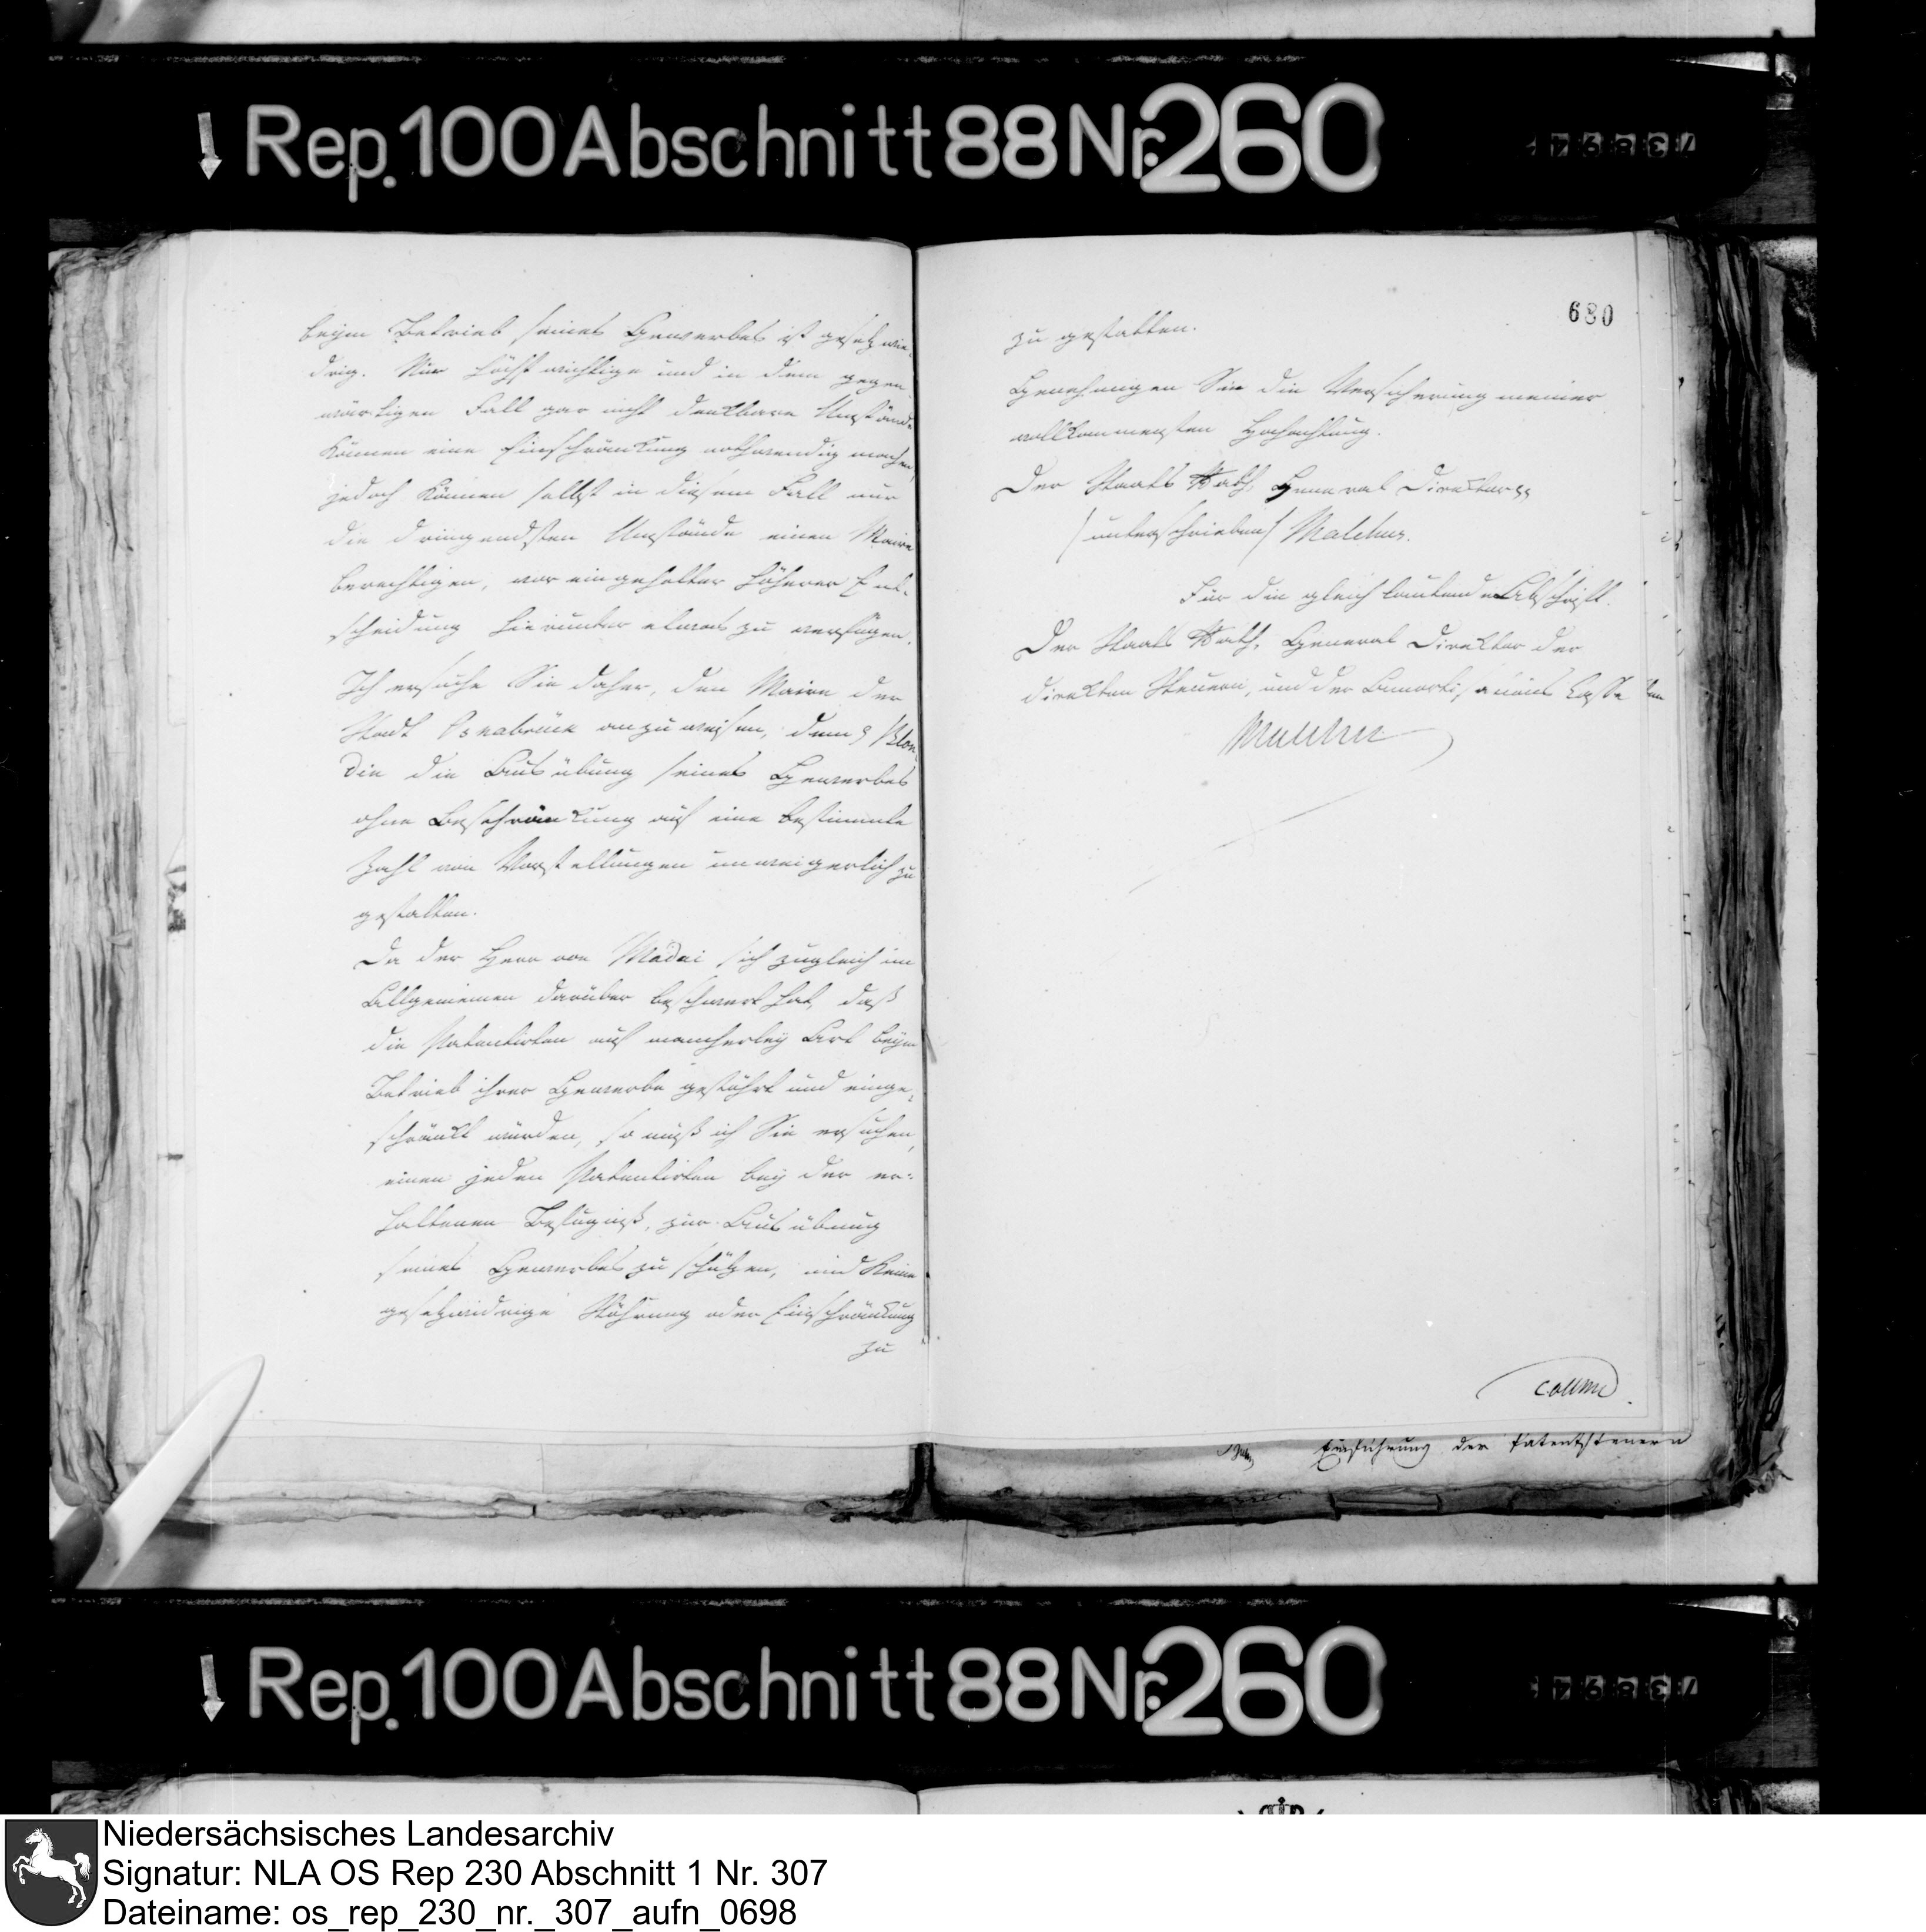 Rep. 100 Abschnitt 88 Nr. 260
beym Betrieb seines Gewerbes ist gesetzwie-
drig. Nur höchst wichtige und in dem gegen
wärtigen Fall gar nicht denkbare Umstände
können eine Einschränkung nothwendig machen,
jedoch können selbst in diesem Fall nur
die dringendsten Umstände einen Maire
berechtigen, vor eingeholter höherer Ent-
scheidung hierunter etwas zu verfügen.
Ich ersuche Sie daher, den Maire der
Stadt Osnabrück anzuweisen, dem Blon
die Ausübung seines Gewerbes
ohne Beschränkung auf eine bestimmte
Zahl von Vorstellungen unweigerlich zu
gestatten.
Da der Herr von Mädai sich zugleich im
Allgemeinen darüber beschwert hat, daß
die Patentirten auf mancherley Art beym
Betrieb ihrer Gewerbe gestöhrt und einge-
schränkt würden, so muß ich Sie ersuchen,
einen jeden Patentirten bey der er-
haltenen Befugniß, zur Ausübung
seines Gewerbes zu schützen, und keine
gesetzwidrige Stöhrung oder Einschränkung
zu
680
zu gestatten.
Genehmigen Sie die Versicherung meiner
vollkommensten Hochachtung.
Der Staats Rath, General Direktor
/unterschrieben/ Malchus.
Für die gleichlautende Abschrift.
Der Staats Rath, General Direktor der
direkten Steuern, und der Amortisations Casse
Malchus
Einführung der Patentsteuern
Rep. 100 Abschnitt 88 Nr. 260
Niedersächsisches Landesarchiv
Signatur: NLA OS Rep 230 Abschnitt 1 Nr. 307
Dateiname: os_rep_230_nr._307_aufn_0698